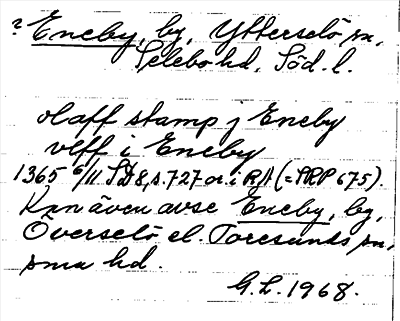 ? Eneby, by, Ytterselö sn,
Selebo hd, Söd. l.
olaff stamp j Eneby
vlff i Eneby
1365 6/11 SD 8, s. 727 or. i RA (= SRP 675).
Kan även avse Eneby, by,
Överselö el. Toresunds sn,
sma hd.
G. L. 1968.